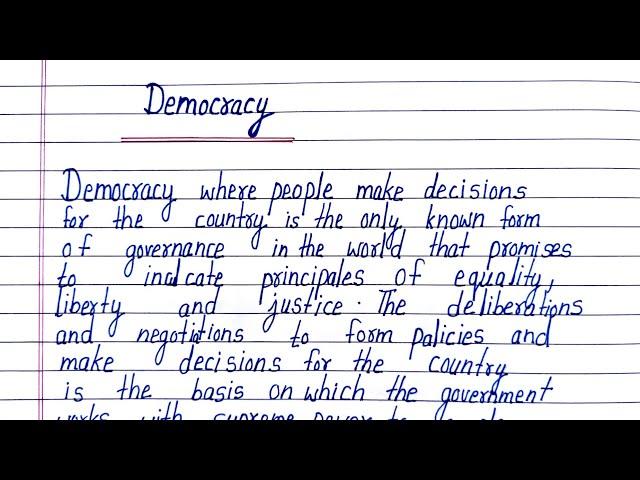 Democracy
Democracy where people make decisions
for the country is the only known form
of governance in the world that promises
to inculcate principales of equality,
liberty and justice. The deliberations
and negotitions to form policies and
make decisions for the country
is the basis on which the government
works with supreme power to people